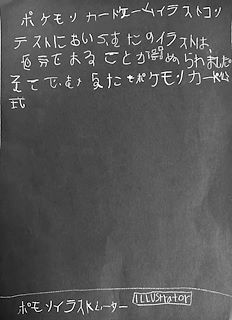 ポケモンカードゲームイラストコン
テストにおいて、あなたのイラストは、
優秀であることが認められました。
そこで、あなたをポケモンカード公
式
ポケモンイラストレーター
ILLUStrator